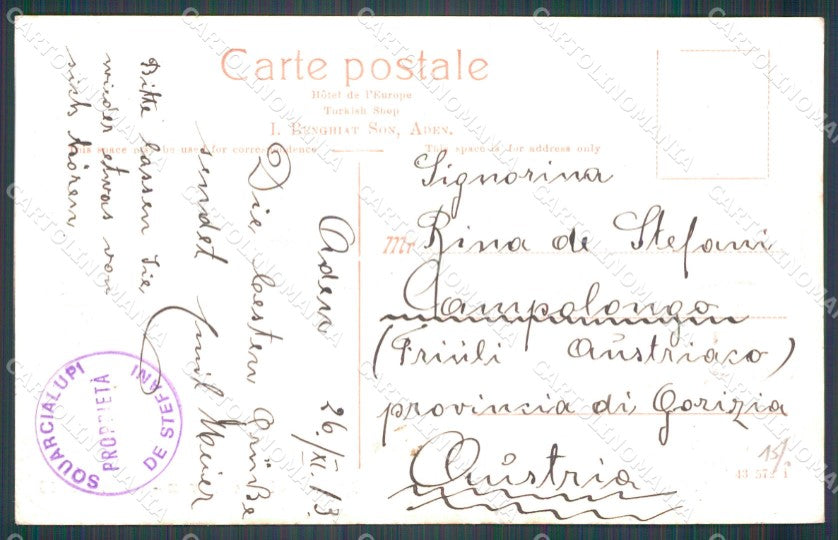 Carte postale
Hôtel de l'Europe
Turkish Shop
I. Benghiat Son, Aden.
This space may be used for correspondence
This space is for address only
Aden 26./XI.13.
Die besten Grüße
sendet Emil Meier
Bitte lassen Sie
wieder etwas von
sich hören
Signorina
Mr Rina de Stefani
Campolongo
(Friuli Austriaco)
provincia di Gorizia
Austria
43 572 1
15/
SQUARCIALUPI
PROPRIETÀ
DE STEFANI
CARTOLINOMANIA